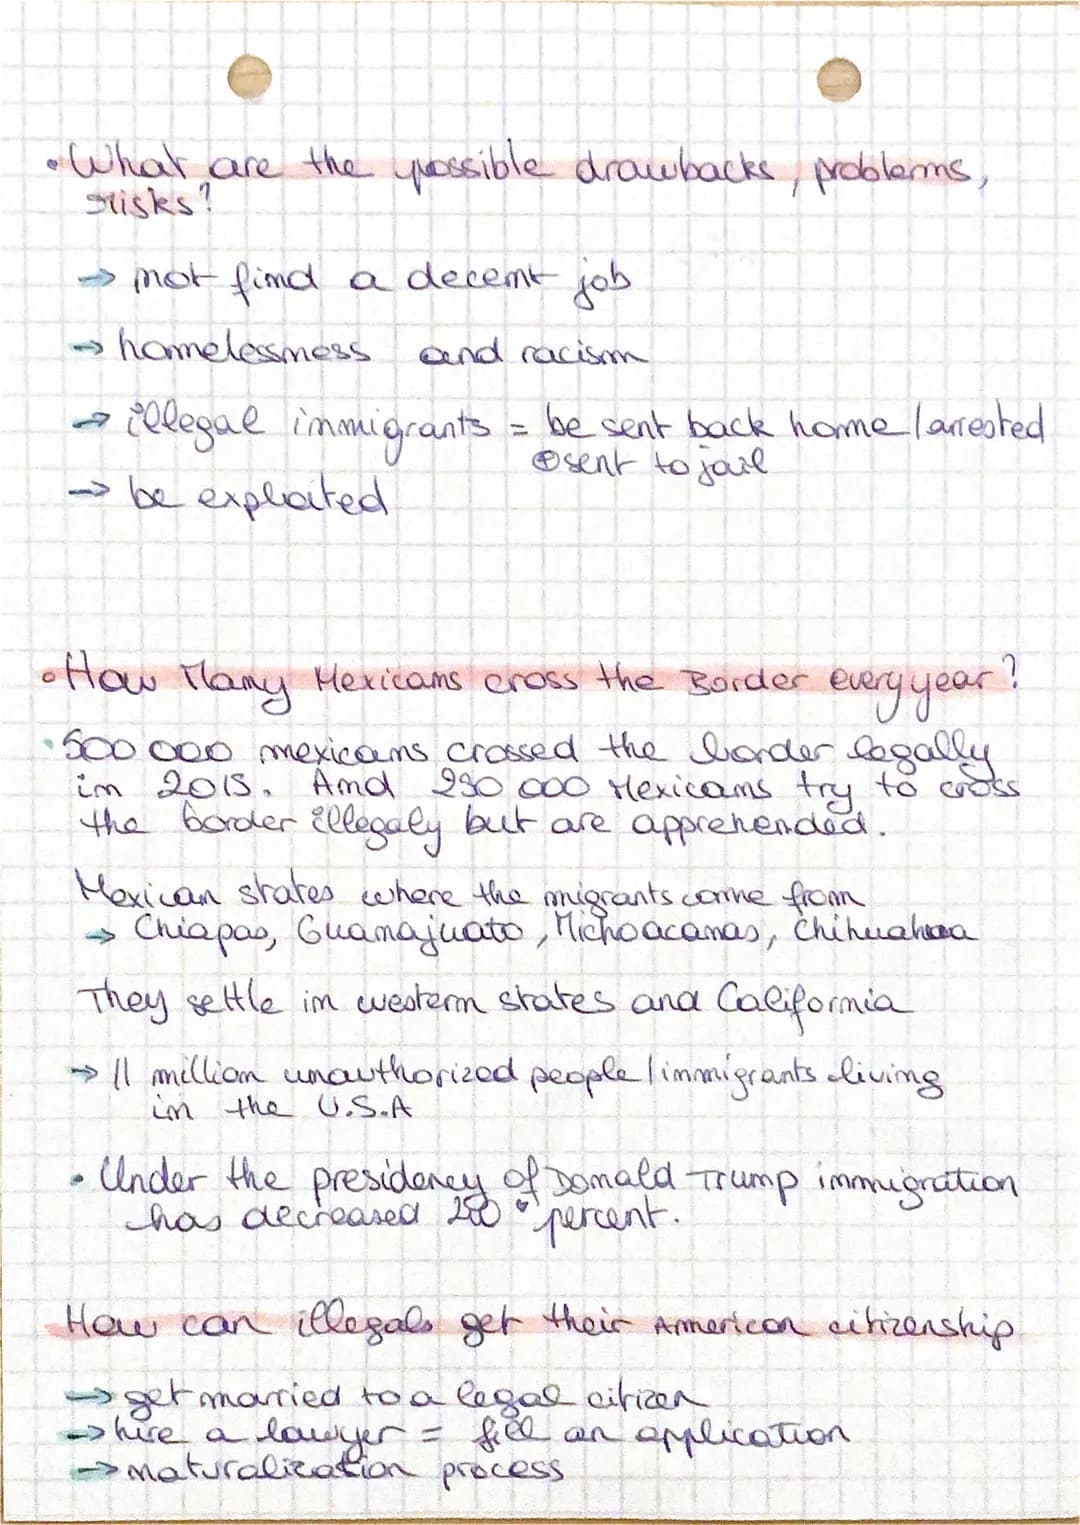 • What are the possible drawbacks, problems,
risks?
→ not find a decent job
→ homelessness and racism
→ illegal immigrants = be sent back home / arrested
⊕ sent to jail
→ be exploited
• How Many Mexicans cross the Border every year?
• 500 000 mexicans crossed the border legally
in 2015. And 230 000 Mexicans try to cross
the border illegaly but are apprehended.
Mexican states where the migrants come from
→ Chiapas, Guanajuato, Michoacanas, Chihuahaa
They settle in western states and California
→ 11 million unauthorized people / immigrants living
in the U.S.A
• Under the presidency of Donald Trump immigration
has decreased percent.
How can illegals get their American citizenship
→ get married to a legal citizen
→ hire a lawyer = fill an application
→ naturalization process